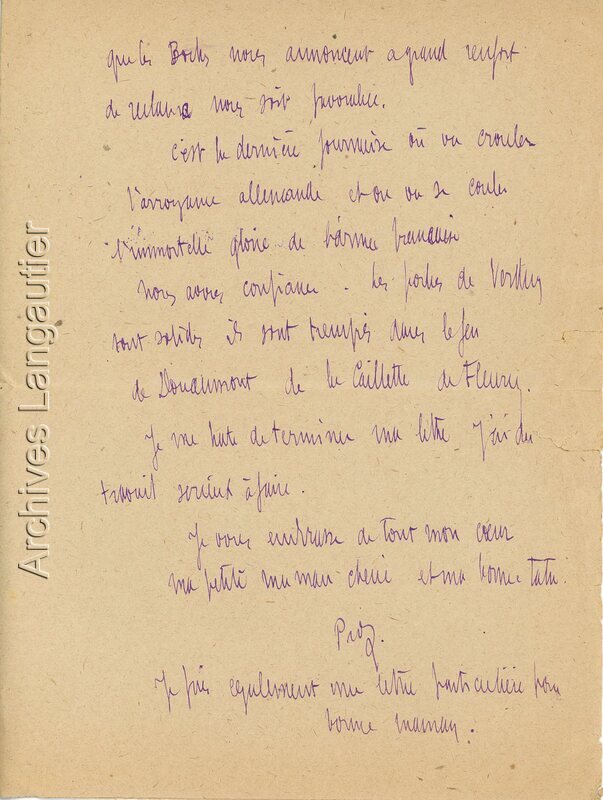 que les Boches nous annoncent a grand renfort
de reclame nous soit favorable.
c'est la dernière fournaise où va crouler
l'arrogance allemande et ou va se couler
l'immortelle gloire de l'armée française
nous avons confiance. Les poilus de Verdun
sont solides ils sont trempés dans le feu
de Douaumont de la Caillette de Fleury.
Je me hate de terminer ma lettre j'ai du
travail serieux à faire.
Je vous embrasse de tout mon cœur
ma petite maman cherie et ma bonne tata.
Je fais egalement une lettre particulière pour
bonne maman.
Archives Langautier